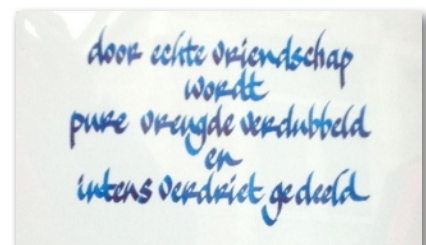 door echte vriendschap
wordt
pure vreugde verdubbeld
en
intens verdriet gedeeld